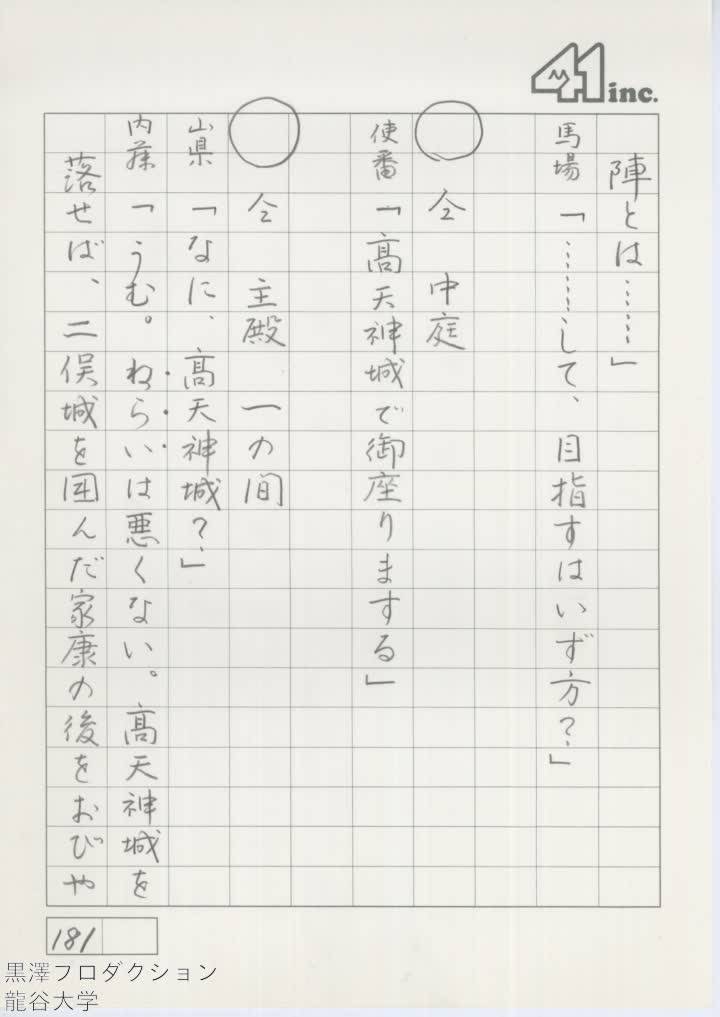 41 inc.
陣とは……」
馬場「………して、目指すはいず方？」
○ 仝 中庭
使番「高天神城で御座りまする」
○ 仝 主殿 一の間
山県「なに、高天神城？」
内藤「うむ。ねらいは悪くない。高天神城を
落せば、二俣城を囲んだ家康の後をおびや
181
黒澤プロダクション
龍谷大学